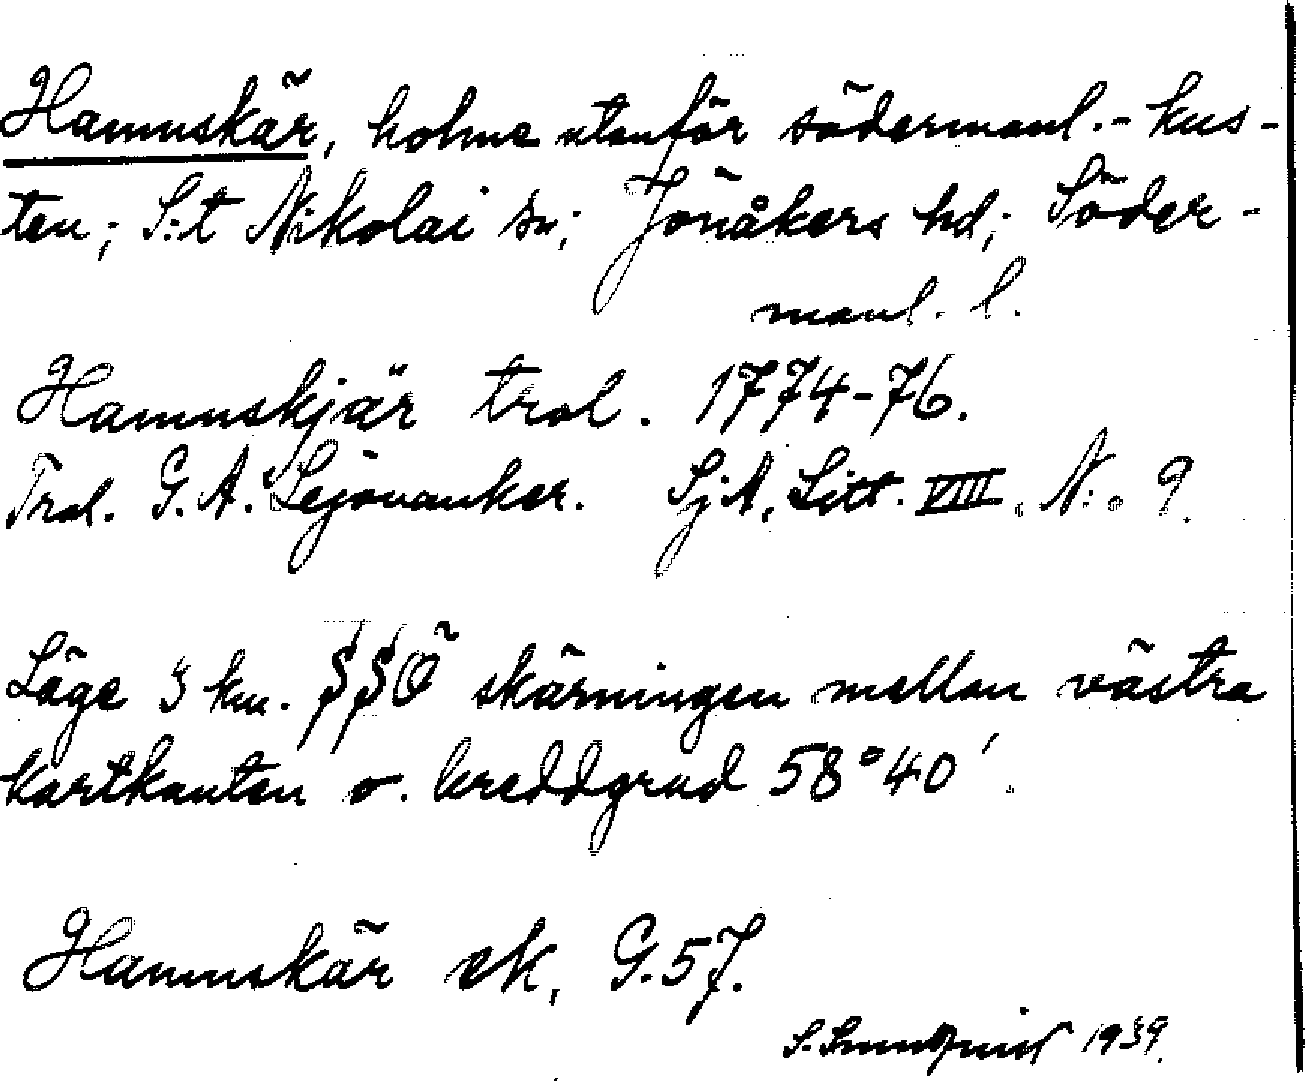 Hamnskär, holme utanför södermanl.-kus-
ten; S:t Nikolai sn; Jönåkers hd; Söder-
manl. l.
Hamnskjär trol. 1774-76.
Trol. G. A. Lejonanker. SjA, Litt. VIII. N:o 9.
Läge 3 km. SSÖ skärningen mellan västra
kartkanten o. breddgrad 58°40'.
Hamnskär ek, G. 57.
S. 1939.